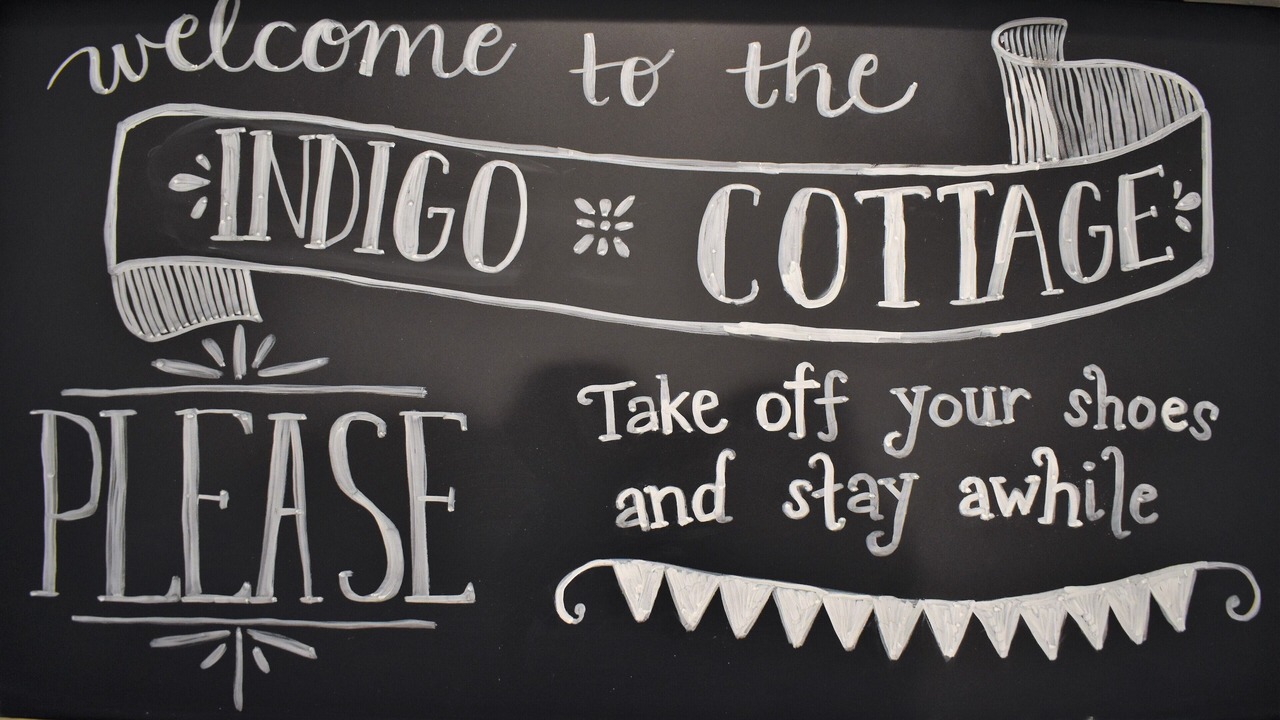 welcome to the
INDIGO COTTAGE
PLEASE
Take off your shoes
and stay awhile